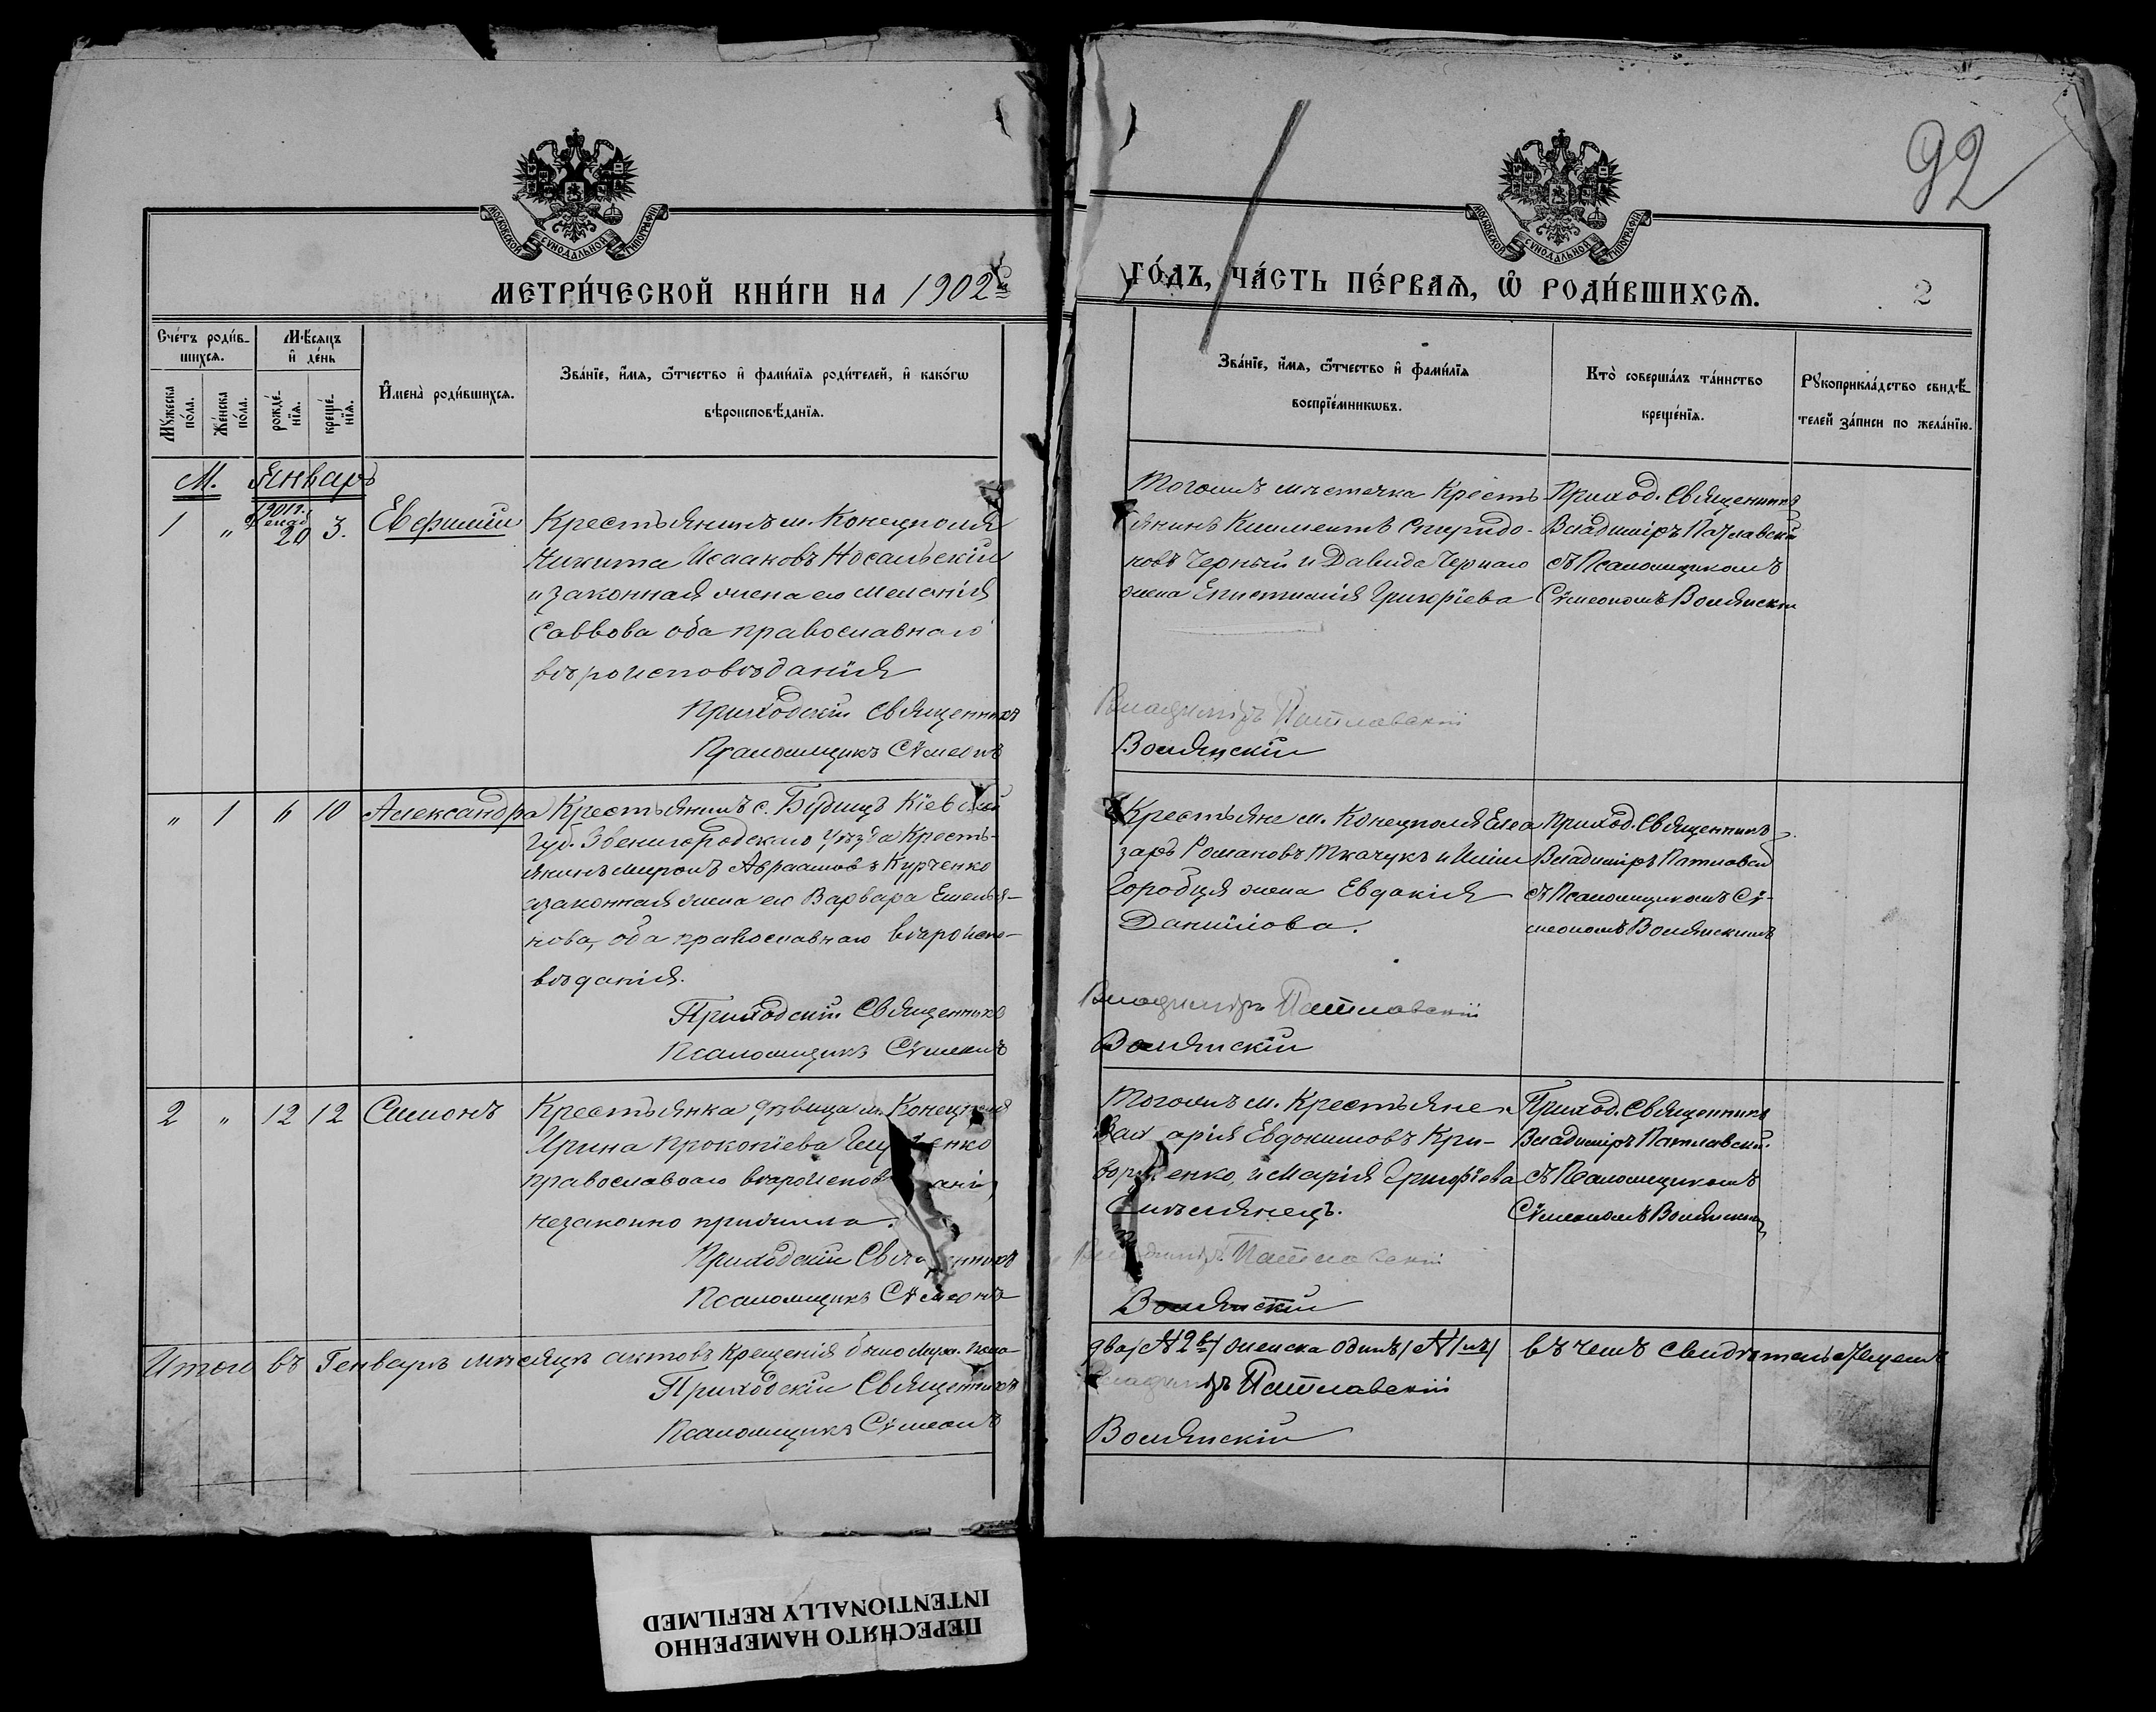 92
МОСКОВСКОЙ СѴНОДАЛЬНОЙ ТИПОГРАФІИ
МОСКОВСКОЙ СѴНОДАЛЬНОЙ ТИПОГРАФІИ
МЕТРИ́ЧЕСКОЙ КНИ́ГИ НА 1902й
ГО́ДЪ, ЧА́СТЬ ПЕ́РВАѦ, Ѡ҆ РОДИ́ВШИХСѦ.
2
Сче́тъ роди́в-
шихсѧ.
Мꙋ́жеска по́ла.
Же́нска по́ла.
Мѣ́сѧцъ
и҆ де́нь
рожде́-
нїѧ.
креще́-
нїѧ.
И҆мена̀ роди́вшихсѧ.
Зва́нїе, и҆́мѧ, ѻ҆́тчество и҆ фами́лїѧ роди́телей, и҆ како́гѡ
вѣроисповѣ́данїѧ.
Зва́нїе, и҆́мѧ, ѻ҆́тчество и҆ фами́лїѧ
воспрїе́мникѡвъ.
Кто̀ соверша́лъ та́инство
креще́нїѧ.
Рꙋкоприкла́дство свидѣ́-
телей за́писи по жела́нїю.
М. Январь
1 „ 1901г. Декаб. 20 3. Евфимій
Крестьянинъ м. Конецполя
Никита Исааковъ Носальскій
и законная жена его Меланія
Саввова оба православнаго
вѣроисповѣданія
Приходскій Священникъ
Псаломщикъ Сѵмеонъ
Тогожъ мѣстечка Кресть-
янинъ Климентъ Спиридо-
новъ Черный и Давида Чернаго
жена Епистимія Григорїева
Владиміръ Патлавскій
Волянскій
Приход. Священникъ
Владиміръ Патлавскій
съ Псаломщикомъ
Сѵмеономъ Волянским
„ 1 6 10 Александра
Крестьянинъ с. Кіевской
Губ. Звенигородскаго Уѣзда Кресть-
янинъ Миронъ Авраамовъ Курченко
и законная жена его Варвара Емелья-
нова, оба православнаго вѣроиспо-
вѣданія.
Приходскій Священникъ
Псаломщикъ Сѵмеонъ
Крестьяне м. Конецполя Елеа
заръ Романовъ Ткачукъ и Иліи
Горобця жена Евдокія
Даниілова.
Владиміръ Патлавскій
Волянскій
Приход. Священникъ
Владиміръ Патлавскій
съ Псаломщикомъ Сѵ-
меономъ Волянскимъ
2 „ 12 12 Симонъ
Крестьянка дѣвица м. Конецполя
Ирина Прокопїева
православнаго
незаконно прижила.
Приходскій Священникъ
Псаломщикъ Сѵмеонъ
Тогожъ м. Крестьяне
Захарія Евдокимовъ Кри-
и Марія Григорїева
Владиміръ Патлавскій
Волянскій
Приход. Священникъ
Владиміръ Патлавскій
съ Псаломщикомъ
Сѵмеономъ Волянским
Итого въ Генварѣ мѣсяцѣ актовъ крещенія было муж. пола
два /№ 2й/ женска одинъ /№ 1й/ въ чемъ свидѣтельствуемъ
Приходскій Священникъ Владиміръ Патлавскій
Псаломщикъ Сѵмеонъ Волянскій
ПЕРЕСНЯТО НАМЕРЕННО
INTENTIONALLY REFILMED